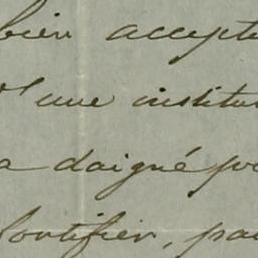 bien accepte
d'une institu
a daigné po
fortifier, pa